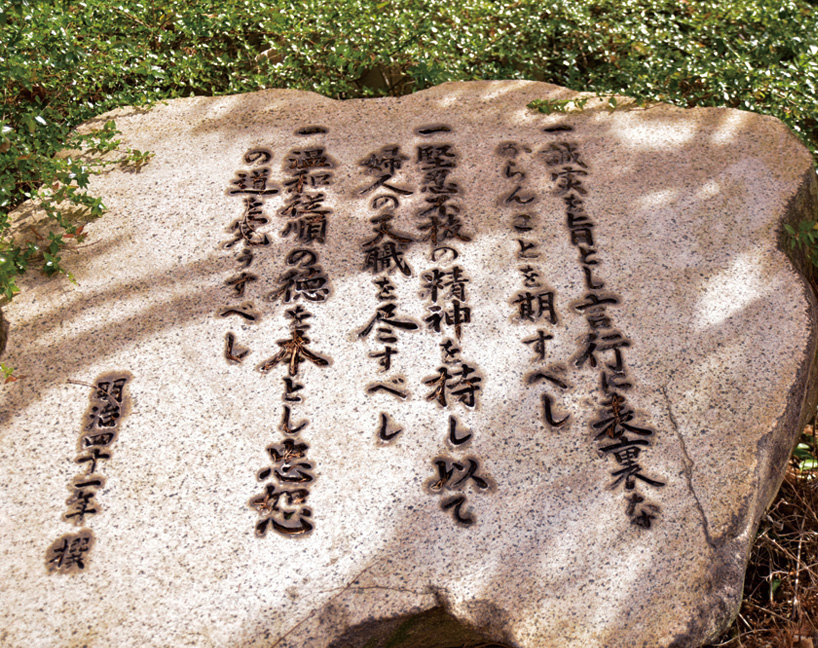 一誠実を旨とし言行に表裏な
からんことを期すべし
一堅忍不抜の精神を持し以て
婦人の天職を尽すべし
一温和従順の徳を本とし忠恕
の道を完うすべし
明治四十一年 撰